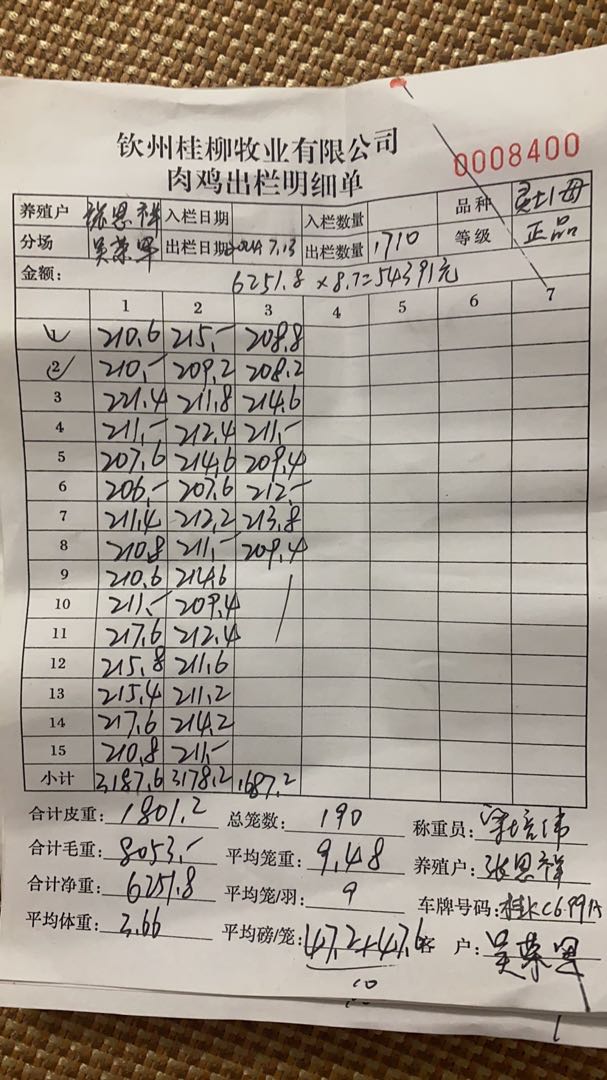 钦州桂柳牧业有限公司
肉鸡出栏明细单
0008400
养殖户 张恩祥 入栏日期 入栏数量 品种
分场 吴荣军 出栏日期 7.13 出栏数量 1710 等级 正品
金额: 6251.8 × 8.7=54391元
1 2 3 4 5 6 7
1 210.6 215.- 208.8
2 210.- 209.2 208.2
3 221.4 211.8 214.6
4 211.- 212.4 211.-
5 207.6 214.6 209.4
6 206.- 207.6 212.-
7 211.4 212.2 213.8
8 210.8 211.- 209.4
9 210.6 214.6
10 211.- 209.4
11 217.6 212.4
12 215.8 211.6
13 215.4 211.2
14 217.6 214.2
15 210.8 211.-
小计 3187.6 3178.2 1687.2
合计皮重: 1801.2 总笼数: 190 称重员:
合计毛重: 8053.- 平均笼重: 9.48 养殖户: 张恩祥
合计净重: 6251.8 平均笼/羽: 9 车牌号码:
平均体重: 3.66 平均磅/笼: 47.2+47.6 客 户:
10